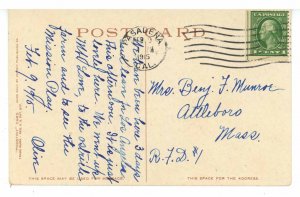 POST CARD
PASADENA
FEB 9
1915
CAL.
We have been here 3 days
and leave for Los Angeles
this afternoon. It is just
lovely here. We went up
to the
farm and to see the
Mission Play.
Feb 9, 1915
Olin
Mrs. Benj. F. Munroe
Attleboro
Mass.
R.F.D. #1
THIS SPACE MAY BE USED FOR
THIS SPACE FOR THE ADDRESS.